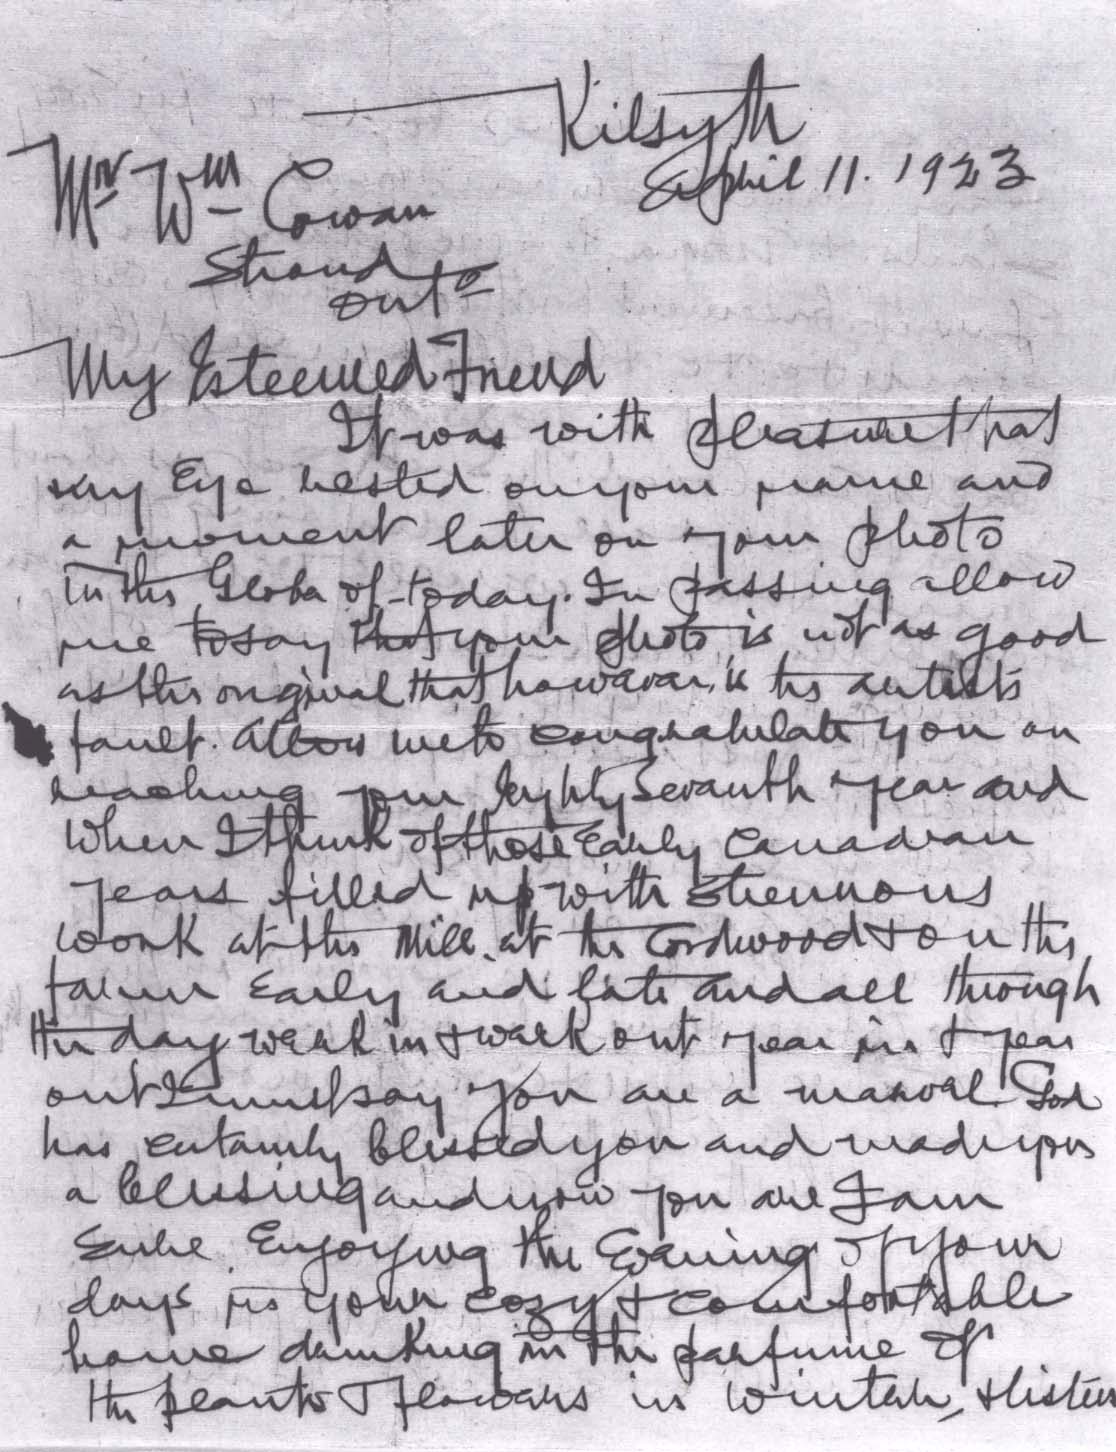 Kilsyth
April 11. 1923
Mr Wm Cowan
Stroud
Ont
My Esteemed Friend
It was with pleasure that
my Eye rested on your name and
a moment later on your photo
in the Globe of today. In passing allow
me to say that your photo is not as good
as the original that however is the artists
fault. Allow me to congratulate you on
reaching your Eighty Seventh year and
When I think of those Early Canadian
years filled up with strenuous
work at the Mill, at the Cordwood & on the
farm Early and late and all through
the day week in & week out year in & year
out I must say you are a marvel. God
has certainly blessed you and made you
a blessing and now you are I am
sure Enjoying the Evening of your
days in your cozy & comfortable
home drinking in the perfume of
the plants & flowers in Winter, & listen